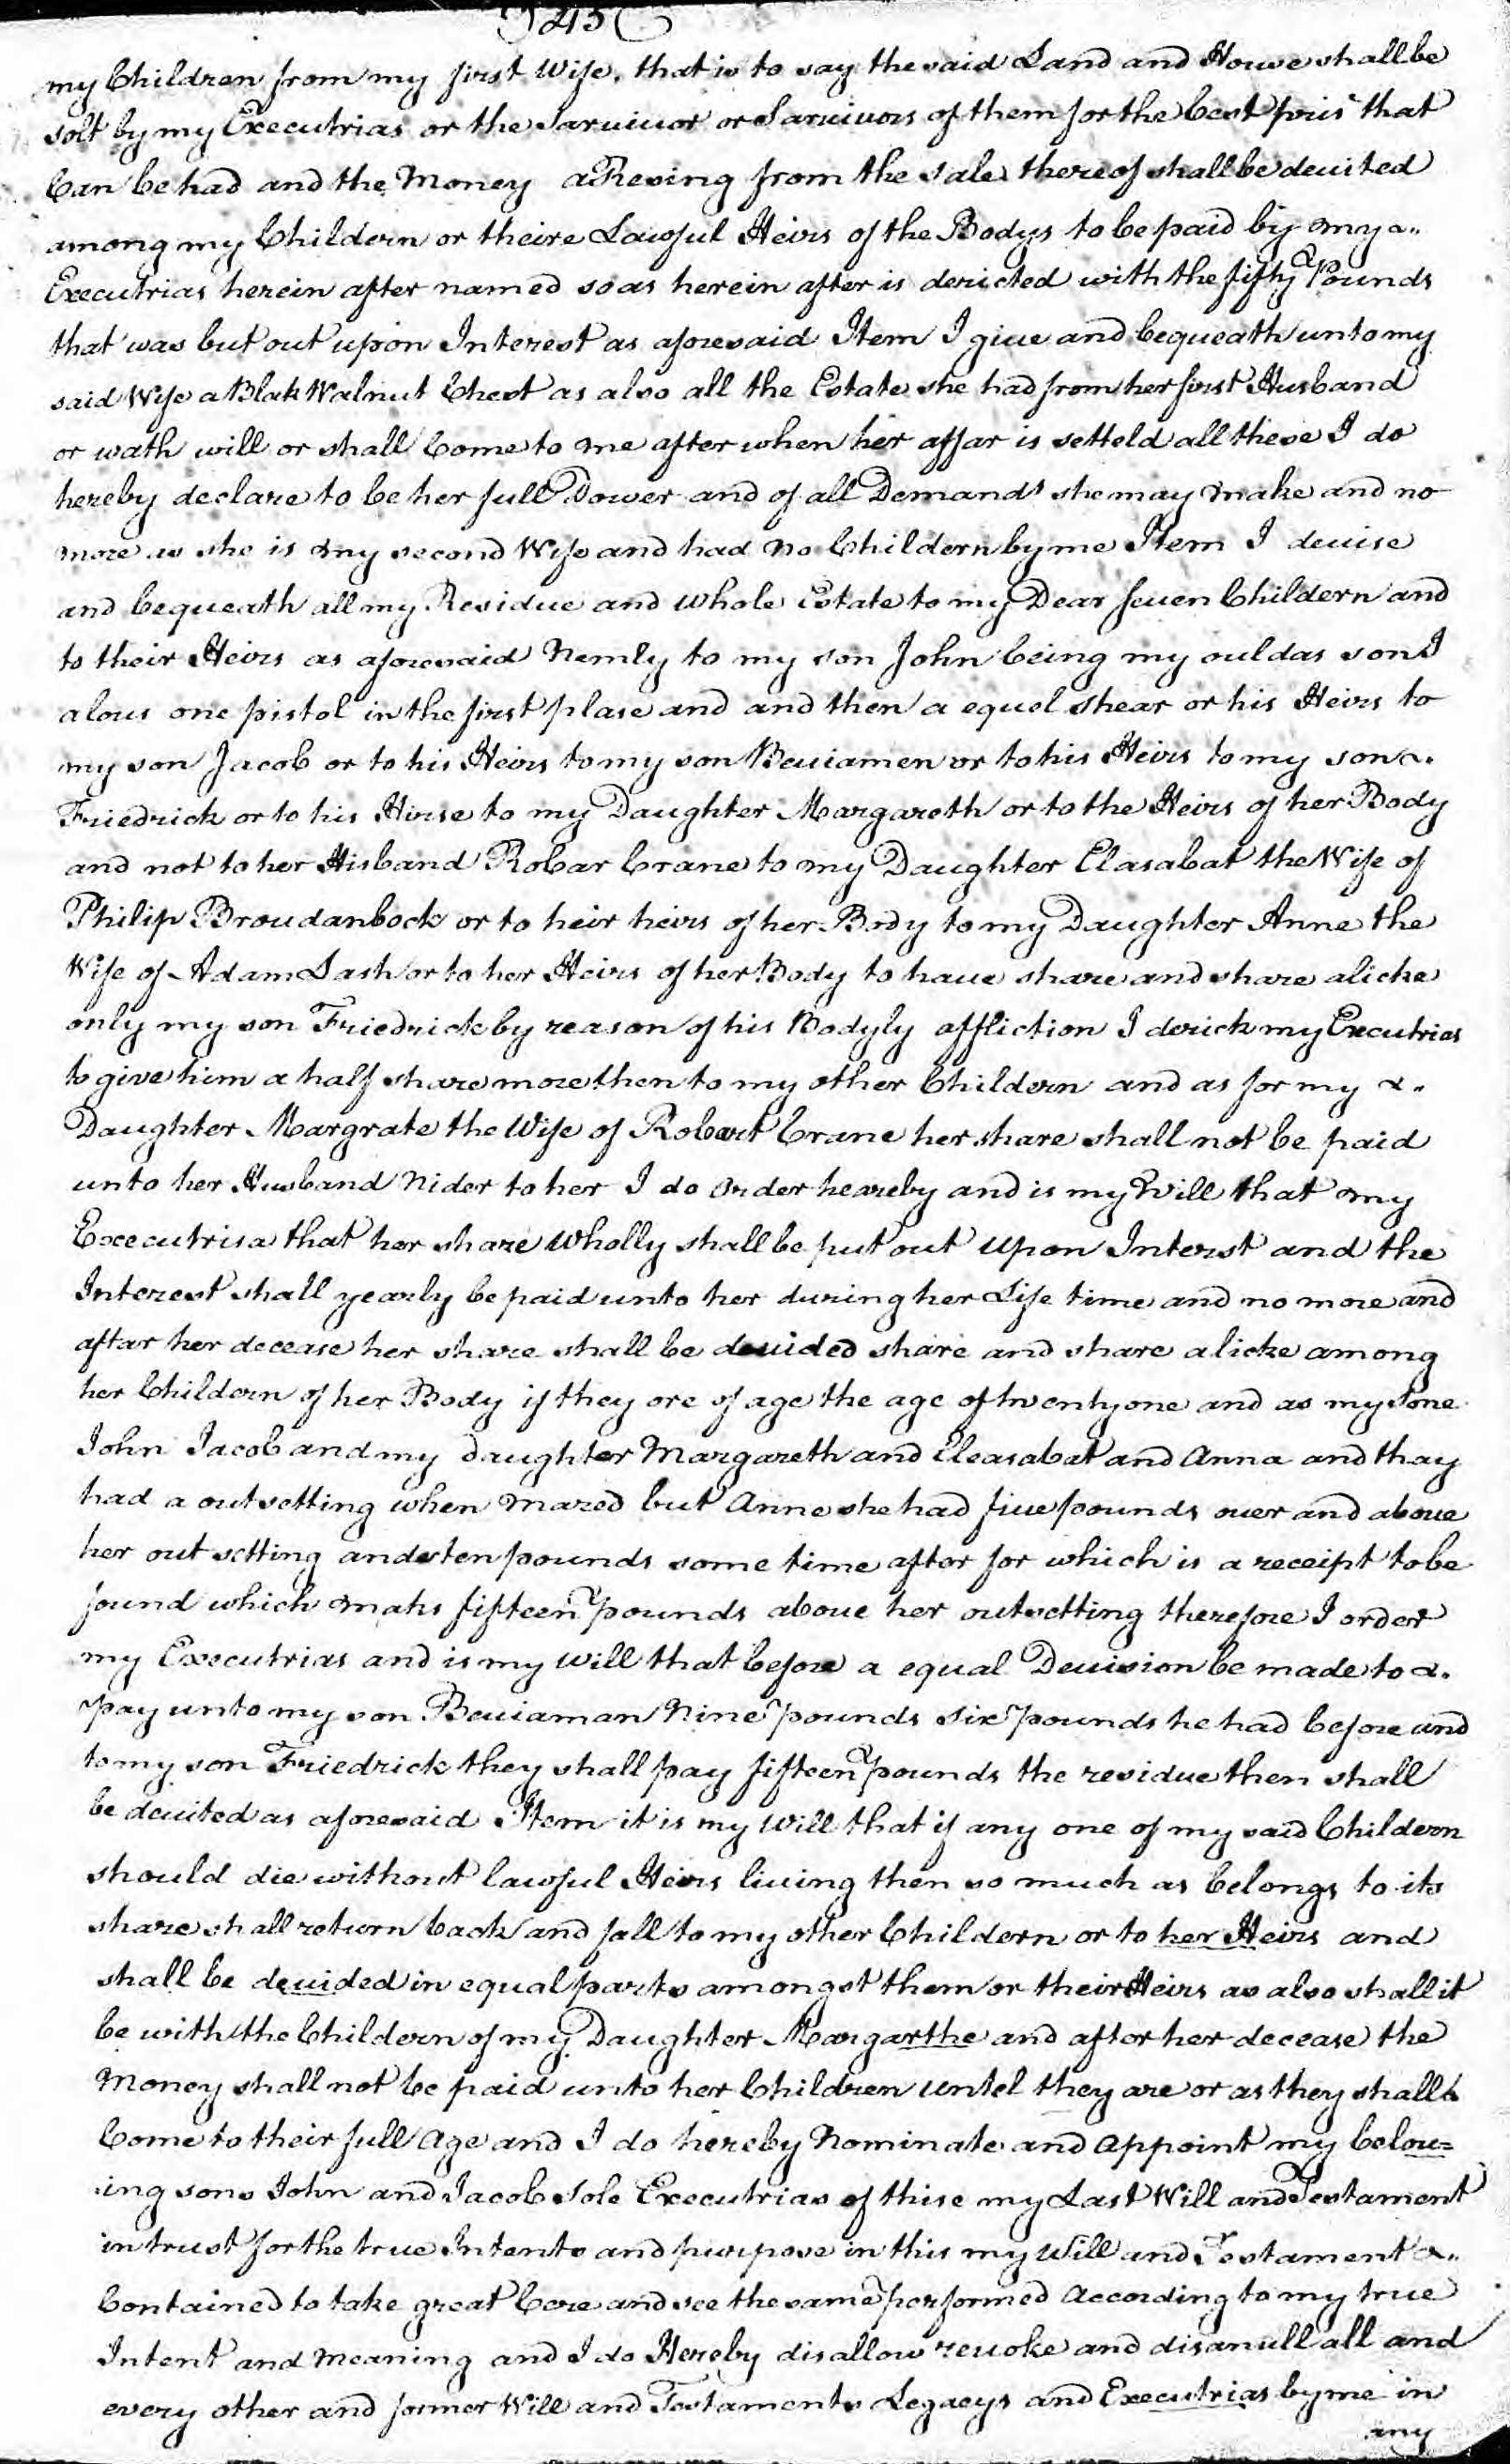 245
my Children from my first Wife, that is to say the said Land and House shall be
solt by my Executrias or the Saruiuor or Saruiuors of them for the best pris that
Can be had and the Money aResing from the sale thereof shall be deuited
among my Childern or theire Lawful Heirs of the Bodys to be paid by my
Executrias herein after named so as herein after is dericted with the fifty Pounds
that was but out upon Interest as aforesaid Item I giue and bequeath unto my
said Wife a Blak Walnut Chest as also all the Estate she had from her first Husband
or wath will or shall Come to me after when her affar is setteld all these I do
hereby declare to be her full Dower and of all Demands she may make and no
more as she is my second Wife and had no Childern by me Item I deuise
and bequeath all my Residue and whole Estate to my Dear seuen Childern and
to their Heirs as aforesaid Nemly to my son John being my ouldas son I
alous one pistol in the first plase and and then a equel shear or his Heirs to
my son Jacob or to his Heirs to my son Beuiamen or to his Heirs to my son
Friedrick or to his Hirse to my Daughter Margareth or to the Heirs of her Body
and not to her Hisband Robar Crane to my Daughter Elasabat the Wife of
Philip Broudanbock or to heir heirs of her Body to my Daughter Anne the
Wife of Adam Lash or to her Heirs of her Body to haue share and share alicke
only my son Friedrick by reason of his Bodyly affliction I derick my Excutrias
to give him a half share more then to my other Childern and as for my
Daughter Margrate the Wife of Robart Crane her share shall not be paid
unto her Husband Nider to her I do order heareby and is my Will that my
Executrisa that her share Wholly shall be put out upon Interst and the
Interest shall yearly be paid unto her during her Life time and no more and
aftar her decease her share shall be deuided share and share alicke among
her Childern of her Body if they ore of age the age of twentyone and as my sone
John Jacob and my daughter Margareth and Eleasabat and Anna and thay
had a outsetting when mared but Anne she had fiue pounds ouer and aboue
her out setting and ten pounds some time after for which is a receipt to be
found which mahs fifteen pounds aboue her outsetting therefore I order
my Executrias and is my will that before a equal Deuision be made to
pay unto my son Beuiaman Nine pounds six pounds he had before and
to my son Friedrick they shall pay fifteen pounds the residue then shall
be deuited as aforesaid Item it is my Will that if any one of my said Childern
should die without lawful Heirs liuing then so much as belongs to its
share shall return back and fall to my other Childern or to her Heirs and
shall be deuided in equal parts amongst them or their Heirs as also shall it
be with the Childern of my Daughter Margarthe and after her decease the
Money shall not be paid unto her Children untel they are or as they shall
Come to their full age and I do hereby Nominate and appoint my belou=
ing sons John and Jacob sole Executrias of thise my Last Will and Testament
in trust for the true Intents and purpose in this my Will and Testament
Contained to take great Care and see the same performed according to my true
Intent and meaning and I do Hereby disallow reuoke and disanull all and
every other and former Will and Testaments Legacys and Executrias by me in
any